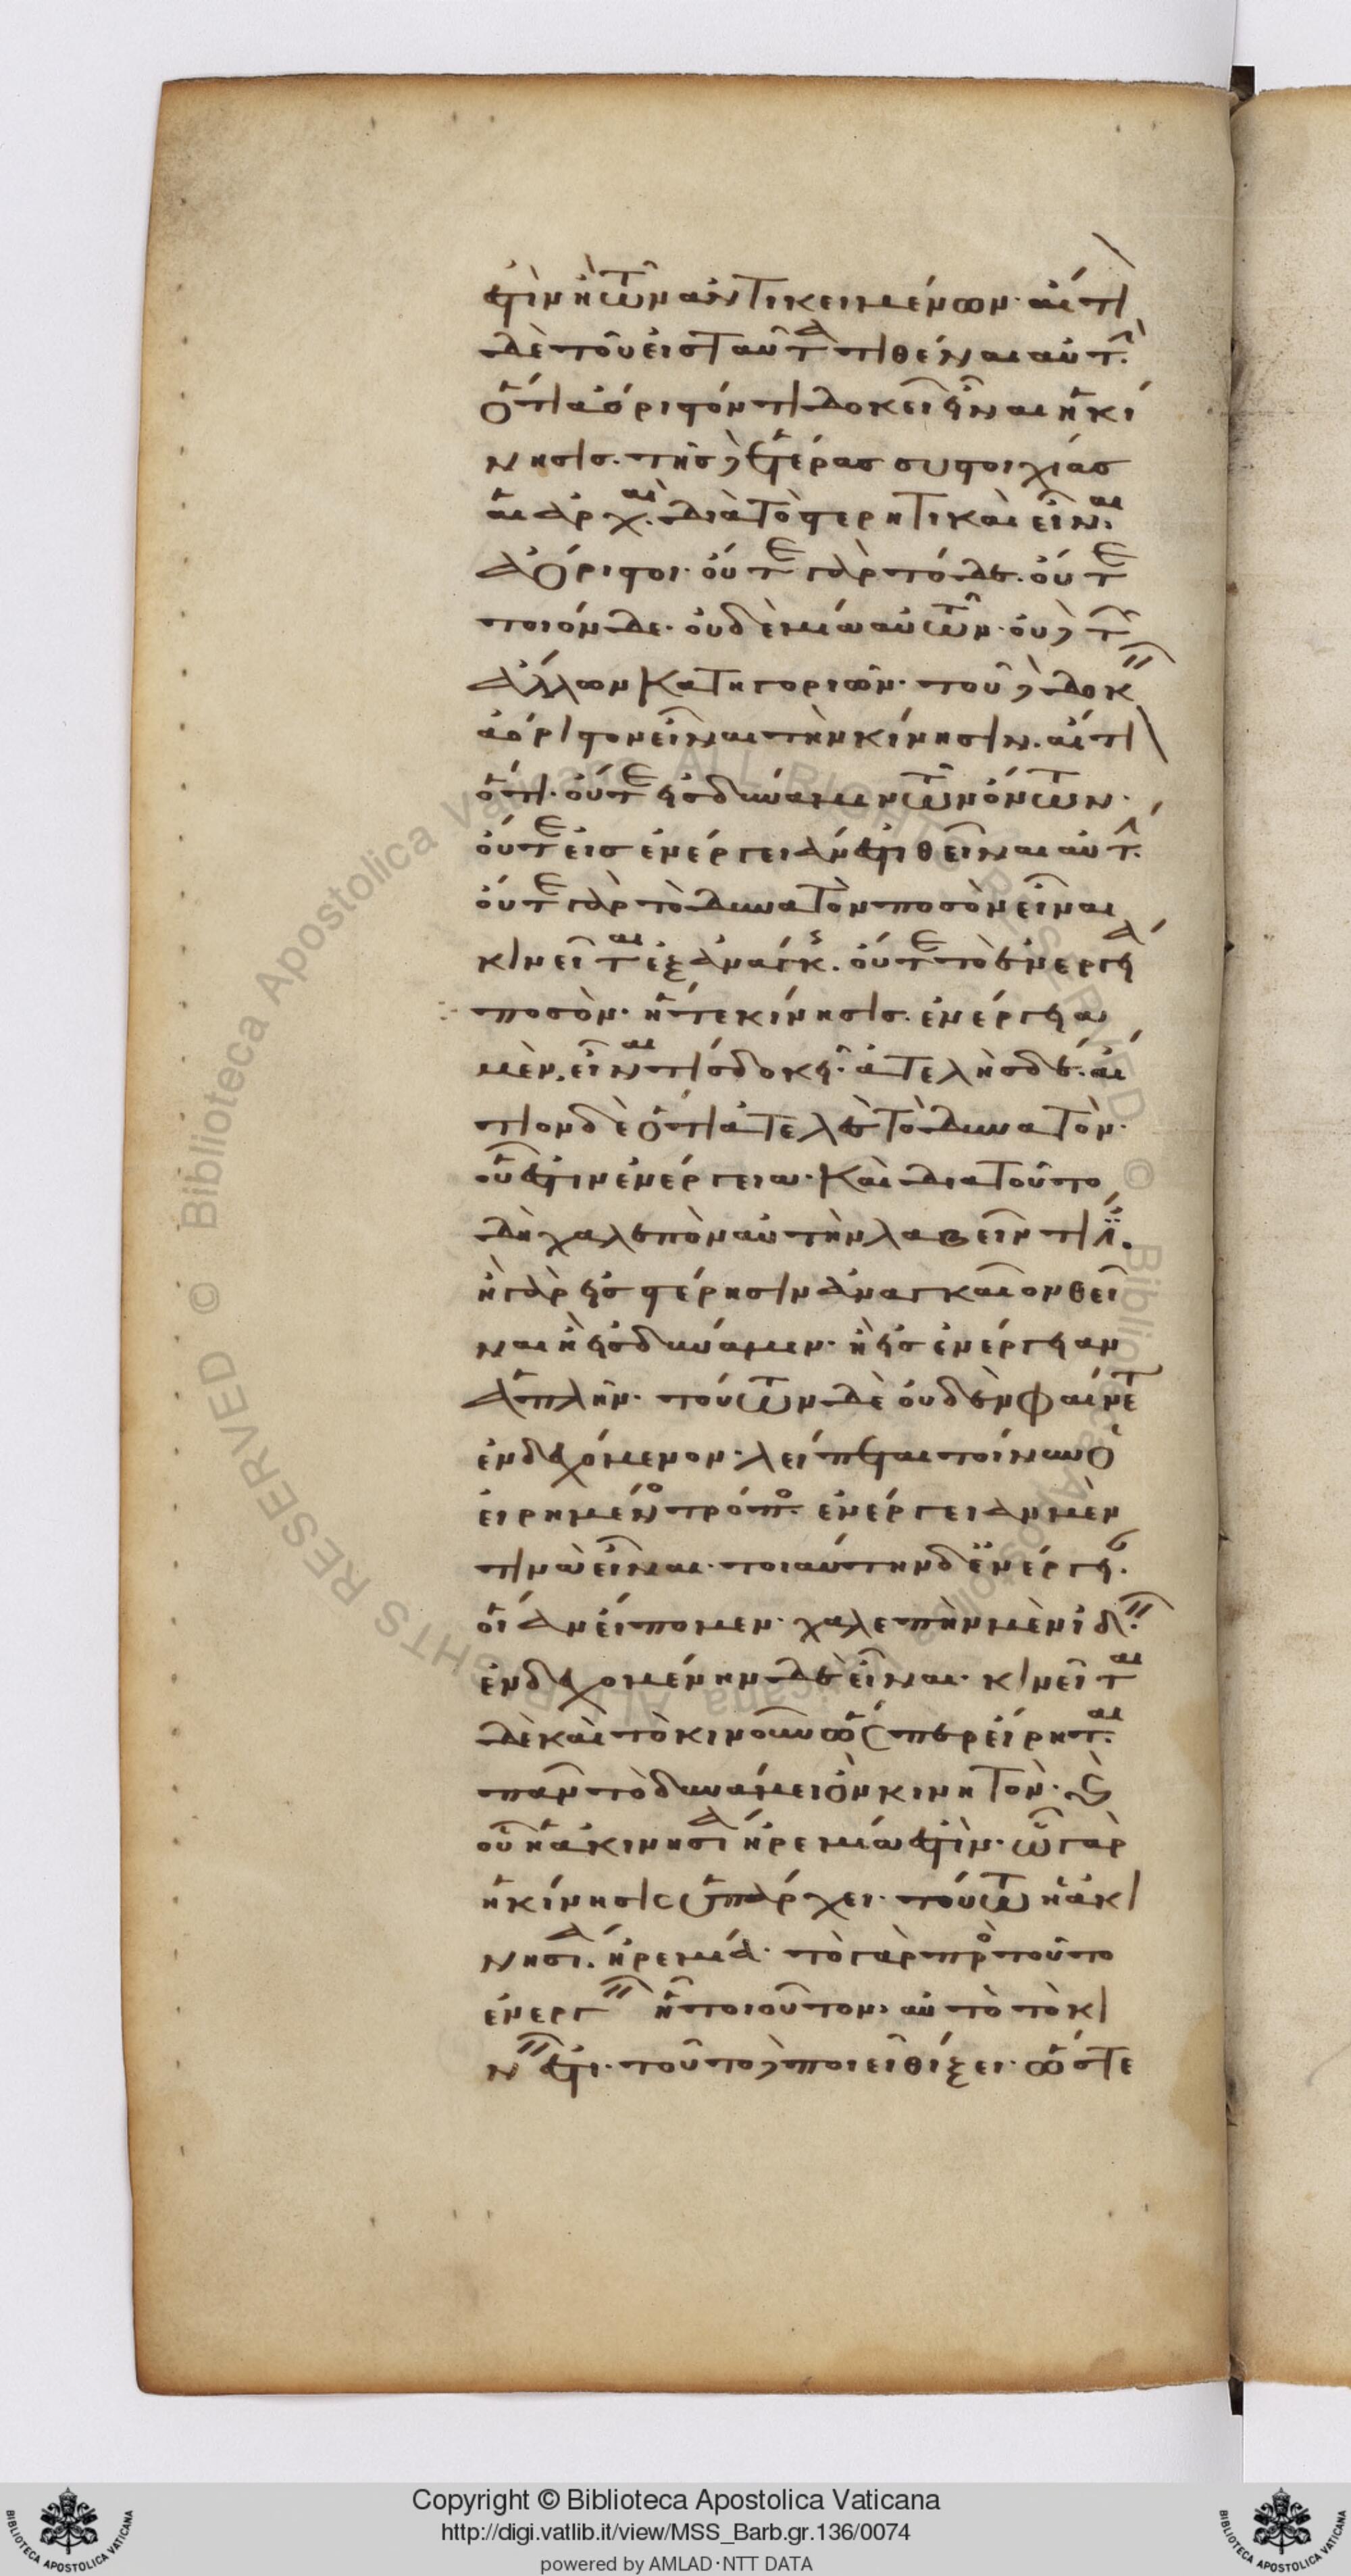 ἐστὶν ἢ τῶν ἀντικειμένων· αἴτι
δὲ τοῦ εἰς ταῦτα τιθέναι αὐτ.
ὅτι ἀόριστόν τι δοκεῖ εἶναι ἡ κί
νησις. τῆς δὲ ἑτέρας συστοιχίας
αἱ ἀρχαὶ. διὰ τὸ στερητικαὶ εἶναι
ἀόριστοι· οὔτε γὰρ τόδε. οὔτε
ποιόνδε· οὐδεμία αὐτῶν· οὐδὲ τ
ἄλλων κατηγοριῶν· τοῦ δὲ δοκ
ἀόριστον εἶναι τὴν κίνησιν. αἴτι
ὅτι. οὔτε εἰς δύναμιν τῶν ὄντων.
οὔτε εἰς ἐνέργειαν ἐστι θεῖναι αὐτ.
οὔτε γὰρ τὸ δυνατὸν ποσὸν εἶναι
κινεῖται ἐξ ἀνάγκ. οὔτε τὸ ἐνεργεία
ποσὸν· ἥ τε κίνησις. ἐνέργεια
μὲν. εἶναι τὶς δοκεῖ· ἀτελὴς δέ. αἴ
τιον δὲ ὅτι ἀτελὲς τὸ δυνατὸν.
οὗ ἐστιν ἐνέργεια· καὶ διατοῦτο
δὴ χαλεπὸν αὐτὴν λαβεῖν τί ἐστίν.
ἢ γὰρ εἰς στέρησιν ἀναγκαῖον θεῖ
ναι ἢ εἰς δύναμιν· ἢ εἰς ἐνέργειαν
ἁπλῆν· τούτων δὲ οὐδὲν φαίνετ
ἐνδεχόμενον· λείπεται τοίνυν ὁ
εἰρημένος τρόπος. ἐνέργειαν μὲν
τινὰ εἶναι· τοιαύτην δ' ἐνέργει.
οἵαν εἴπομεν· χαλεπὴν μὲν ἰδ.
ἐνδεχομένην δὲ εἶναι· κινεῖται
δὲ καὶ τὸ κινοῦν ὥσπερ εἴρηται.
πᾶν τὸ δυνάμει ὂν κινητὸν· καὶ
οὗ ἡ ἀκινησία ἠρεμία ἐστὶν· ὧ γὰρ
ἡ κίνησις ὑπάρχει· τούτω ἡ ἀκι
νησία. ἠρεμία· τὸ γὰρ πρὸ τοῦτο
ἐνεργ ἧ τοιοῦτον· αὐτὸ τὸ κι
ν ἐστι· τοῦτο δὲ ποιεῖ θίξει· ὥστε